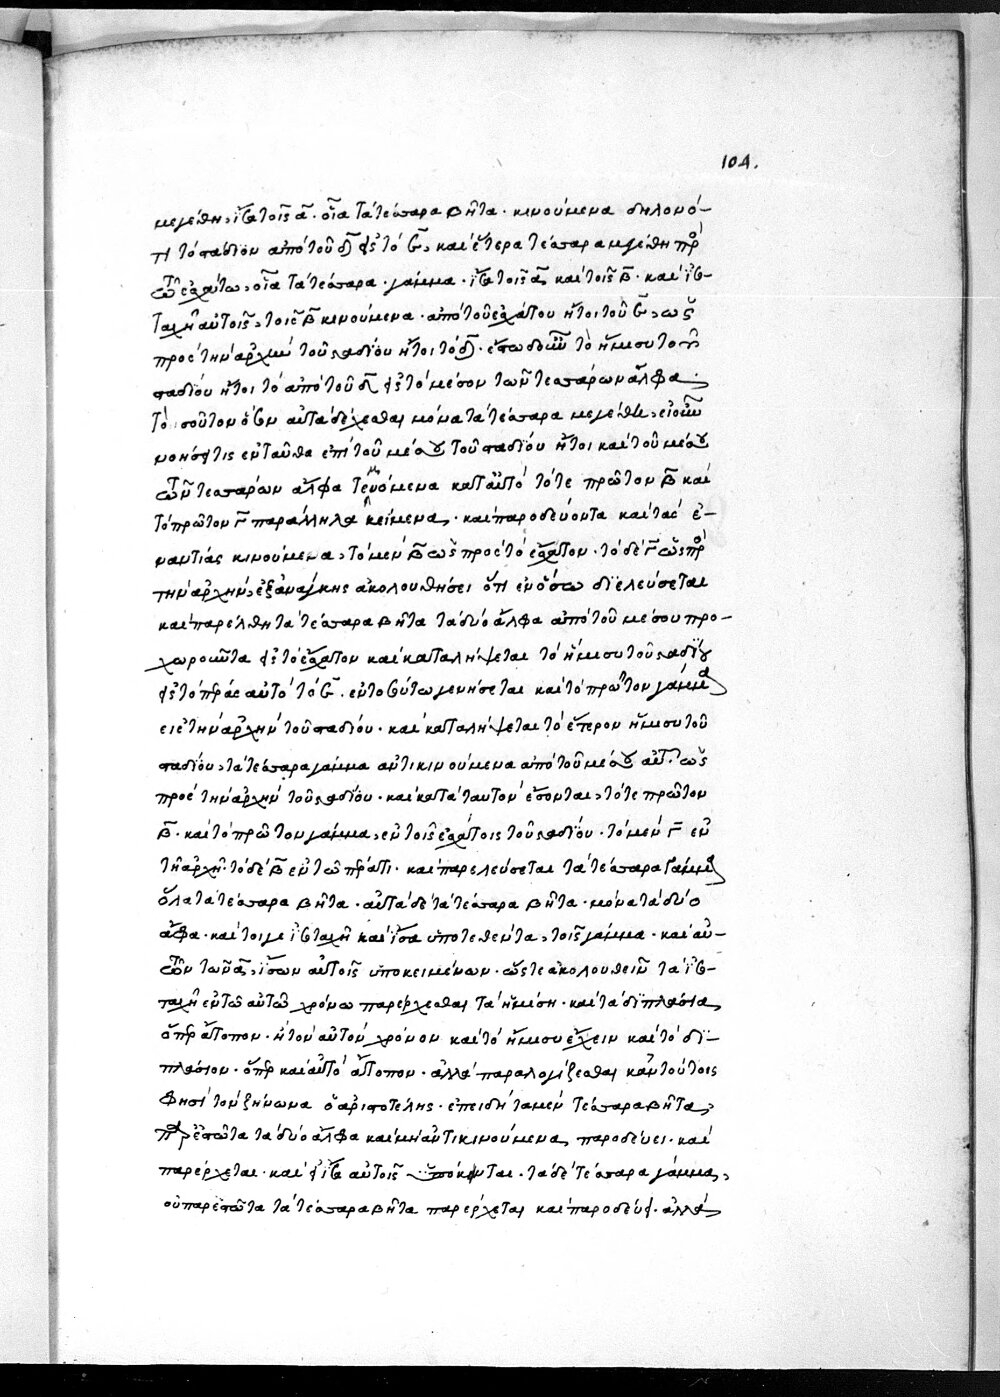 104.
μεγέθη, ἴσα τοῖς α̅. οἷα τὰ τέσσαρα βῆτα. κινούμενα δηλονό-
τι τὸ στάδιον ἀπὸ τοῦ δ̅ εἰς τὸ ε̅, καὶ ἕτερα τέσσαρα μεγέθη πρὸς
τῶ ἐσχάτω, οἷα τὰ τέσσαρα γάμμα. ἴσα τοῖς α̅ καὶ τοῖς β̅. καὶ ἰσο-
ταχῆ αὐτοῖς, τοῖς β̅ κινούμενα. ἀπὸ τοῦ ἐσχάτου ἤτοι τοῦ ε̅, ὡς
πρὸς τὴν ἀρχὴν τοῦ σταδίου ἤτοι τὸ δ̅. ἔστω δὲ τὸ ἥμισυ τοῦ
σταδίου ἤτοι τὸ ἀπὸ τοῦ δ̅ εἰς τὸ μέσον τῶν τεσσάρων ἄλφα.
τοσοῦτον αὐτὰ δέχεσθαι μόνα τὰ τέσσαρα μεγέθη,
νοήσει τις ἐνταῦθα ἐπὶ τοῦ μέσου τοῦ σταδίου ἤτοι καὶ τοῦ μέσου
τῶν τεσσάρων ἄλφα γενόμενα κατ αὐτὸ τό τε πρῶτον β̅ καὶ
τὸ πρῶτον γ̅ παράλληλα κείμενα. καὶ παροδεύοντα καὶ τὰς ἐ-
ναντίας κινούμενα, τὸ μὲν β̅ ὡς πρὸς τὸ ἔσχατον. τὸ δὲ γ̅ ὡς πρὸς
τὴν ἀρχὴν, ἐξανάγκης ἀκολουθήσει ὅτι ἐν ὅσω διελεύσεται
καὶ παρέλθη τὰ τέσσαρα βῆτα τὰ δύο ἄλφα ἀπὸ τοῦ μέσου προ-
χωροῦντα εἰς τὸ ἔσχατον καὶ καταλήψεται τὸ ἥμισυ τοῦ σταδίου
εἰς τὸ πέρας αὐτὸ τὸ ε̅. ἐν τοσούτω γεννήσεται καὶ τὸ πρῶτον γάμμα
εἰς τὴν ἀρχὴν τοῦ σταδίου. καὶ καταλήψεται τὸ ἕτερον ἥμισυ τοῦ
σταδίου, τὰ τέσσαρα γάμμα ἀντικινούμενα ἀπὸ τοῦ μέσου αὐτοῦ. ὡς
πρὸς τὴν ἀρχὴν τοῦ σταδίου. καὶ κατὰ ταυτὸν ἔσονται, τό τε πρῶτον
β̅. καὶ τὸ πρῶτον γάμμα, ἐν τοῖς ἐσχάτοις τοῦ σταδίου. τὸ μὲν γ̅ ἐν
τῆ ἀρχῆ. τὸ δὲ β̅ ἐν τῶ πέρατι. καὶ παρελεύσεται τὰ τέσσαρα γάμμα
ὅλα τὰ τέσσαρα βῆτα. αὐτὰ δὲ τὰ τέσσαρα βῆτα. μόνα τὰ δύο
ἄλφα. καί τοι γε ἰσοταχῆ καὶ ἴσα ὑποτεθέντα, τοῖς γάμμα. καὶ αὐ-
τῶν τῶν α̅, ἴσων αὐτοῖς ὑποκειμένων. ὥστε ἀκολουθεῖν τὰ ἰσο-
ταχῆ ἐν τῶ αὐτῶ χρόνω παρέρχεσθαι τὰ ἡμίση. καὶ τὰ διπλάσια,
ὅπερ ἄτοπον. ἢ τὸν αὐτὸν χρόνον καὶ τὸ ἥμισυ ἔχειν καὶ τὸ δι-
πλάσιον. ὅπερ καὶ αὐτὸ ἄτοπον. ἀλλὰ παραλογίζεσθαι κἀν τούτοις
φησὶ τὸν ζήνωνα ὁ ἀριστοτέλης. ἐπειδὴ τὰ μὲν τέσσαρα βῆτα,
παρεστῶτα τὰ δύο ἄλφα καὶ μὴ ἀντικινούμενα, παροδεύει. καὶ
παρέρχεται. καὶ εἰ ἴσα αὐτοῖς ὑπόκεινται. τὰ δὲ τέσσαρα γάμμα,
οὐ παρεστῶτα τὰ τέσσαρα βῆτα παρέρχεται καὶ παροδεύει. ἀλλὰ